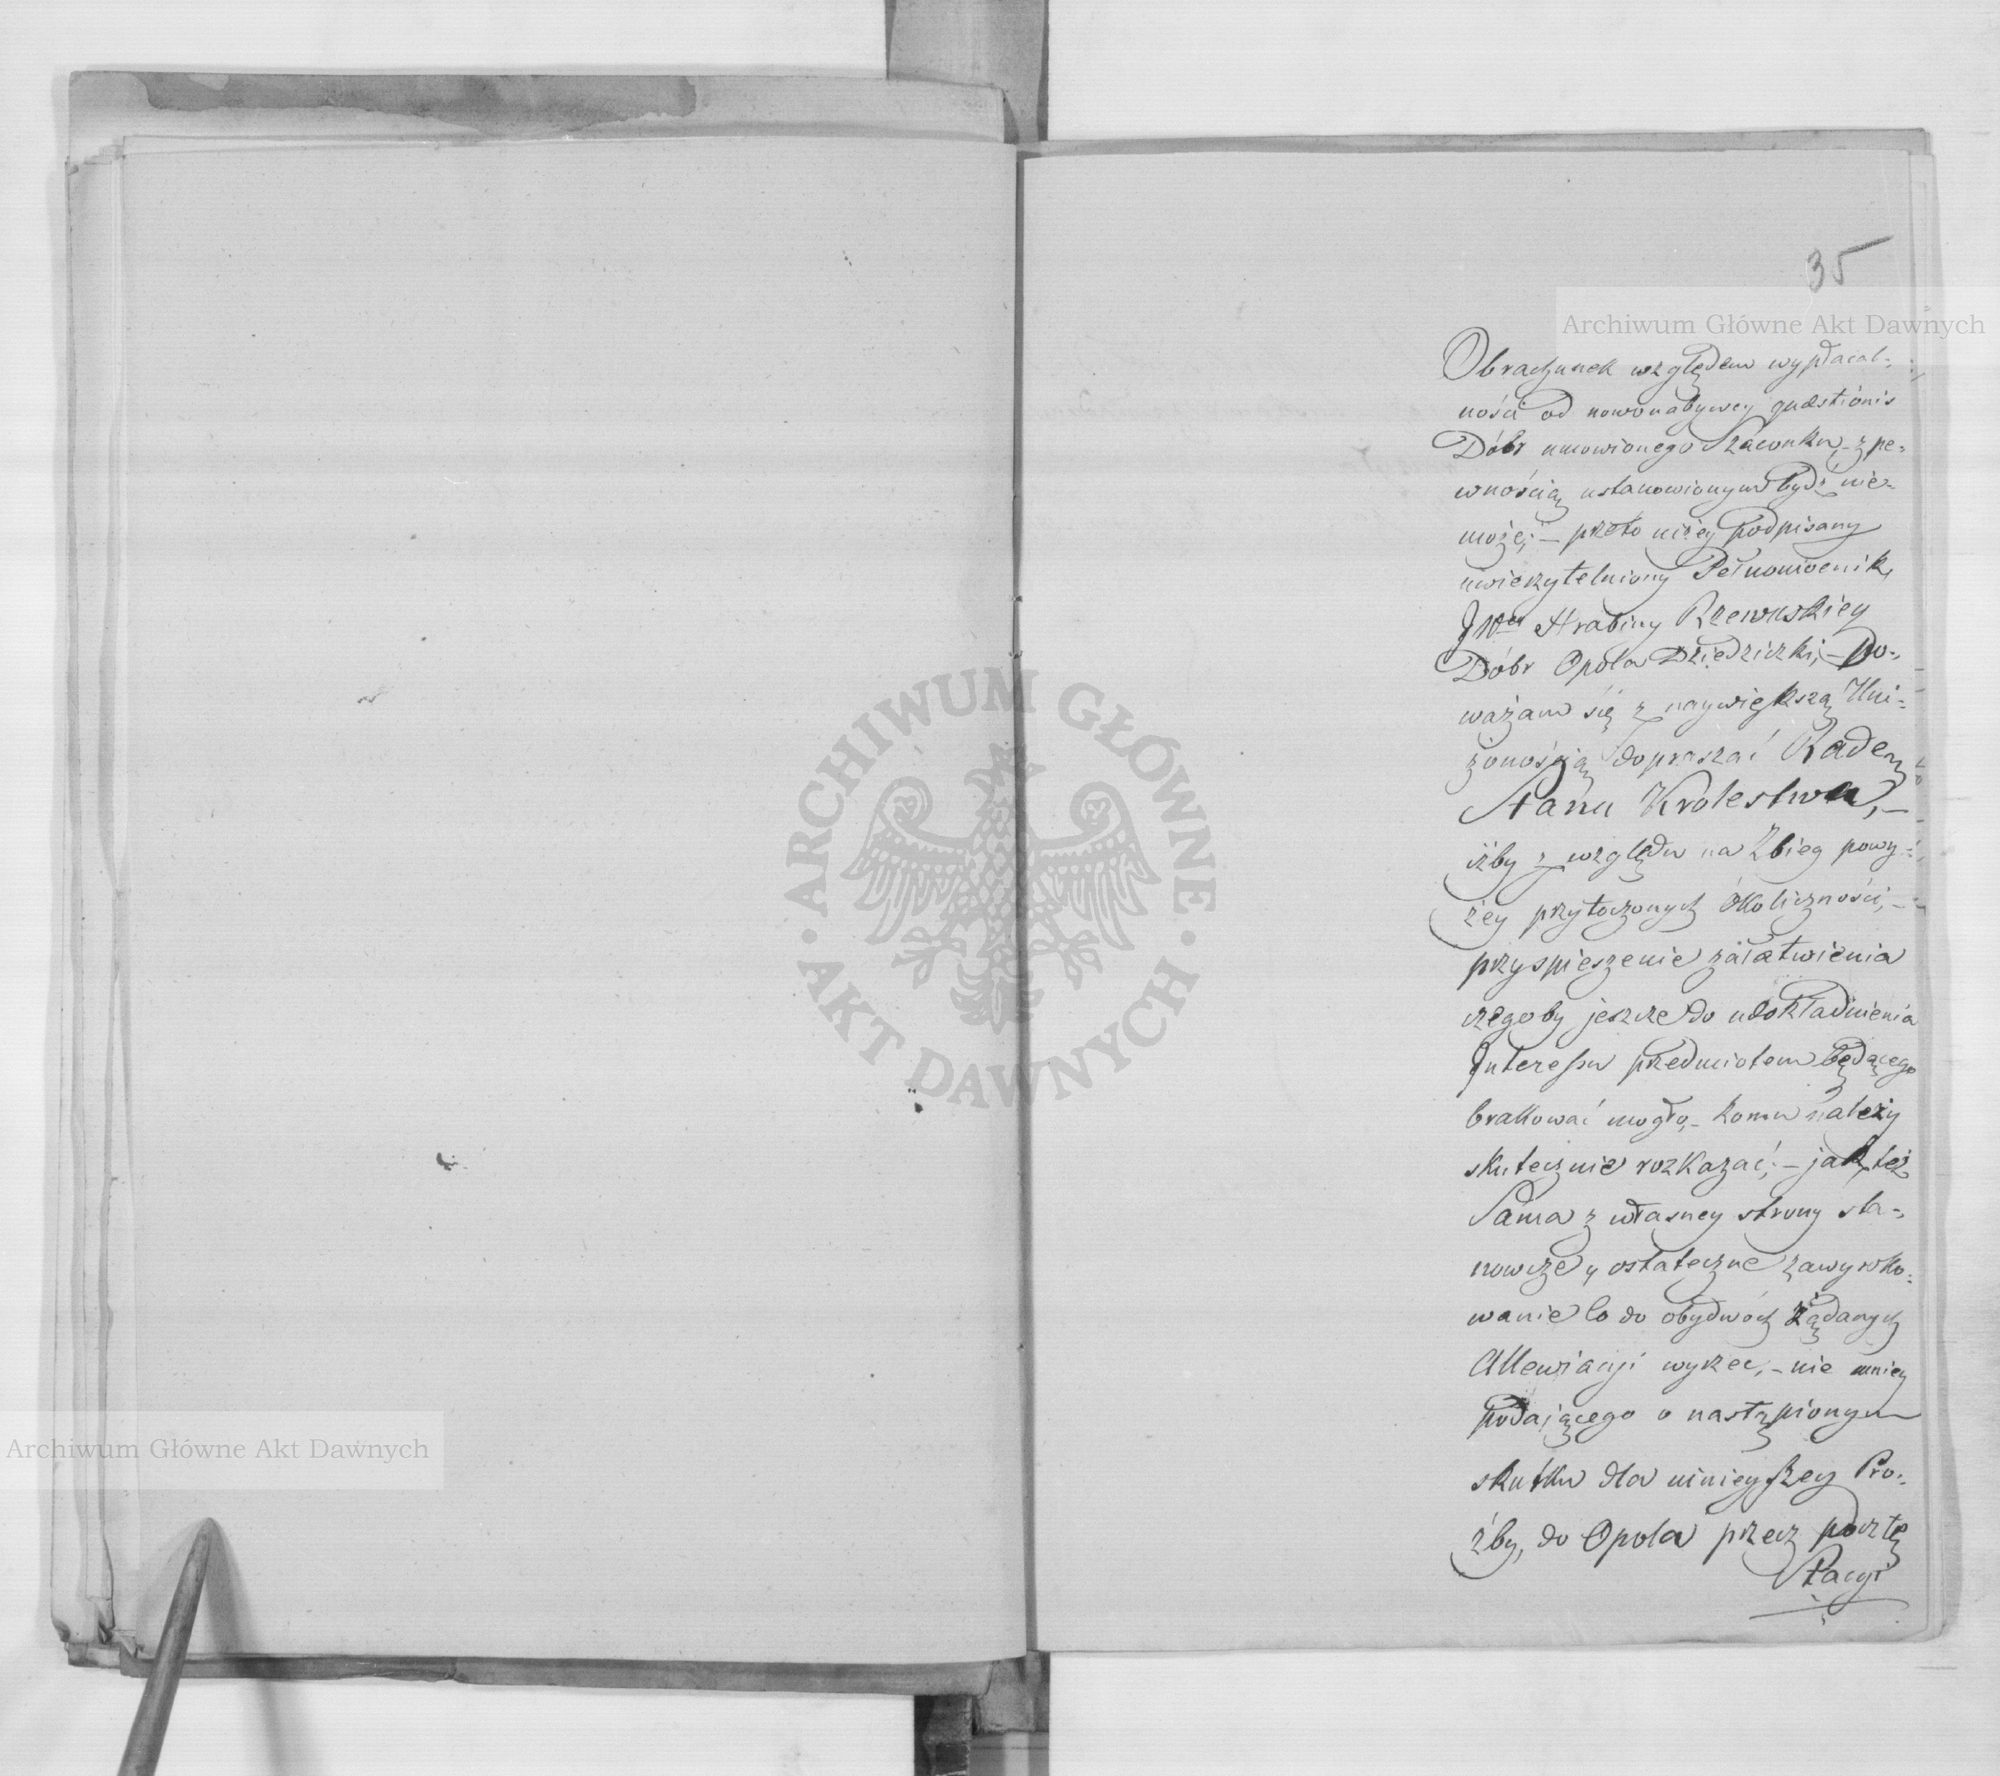 35
Archiwum Główne Akt Dawnych
Obrachunek względem wypłacal-
ności od nowonabywcy quæstionis
Dóbr umowionego Szacunku,- z pe-
wnością ustanowionym bydź nie-
może;- przeto niżey podpisany
uwierzytelniony Pełnomocnik,
JWey Hrabiny Rzewuskiey
Dóbr Opola Dziedziczki,- po-
ważam się z naywiększą Uni-
żonością dopraszać Radem
Stanu Krolestwa,-
iżby z względu na Zbieg powy-
żey przytoczonych Okoliczności,-
przyspieszenie załatwienia
czegoby jeszcze do udokładnienia
Interessu przedmiotem będącego
brakować mogło,- komu należy
skutecznie rozkazać;- jak też
Sama z własney strony sta-
nowcze y ostateczne zawyroko-
wanie Co do obydwóch żądanych
Allewiacyi wyrzec,- nie mniey
podającego o nastąpionym
skutku dla ninieyszey Pro-
źby, do Opola przez pocztę
Stacyi
ARCHIWUM GŁÓWNE · AKT DAWNYCH ·
Archiwum Główne Akt Dawnych